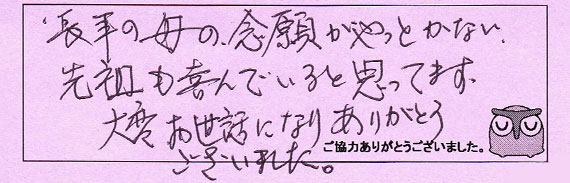 長年の母の、念願がやっとかない、
先祖も喜んでいると思ってます。
大変お世話になりありがとう
ございました。
ご協力ありがとうございました。